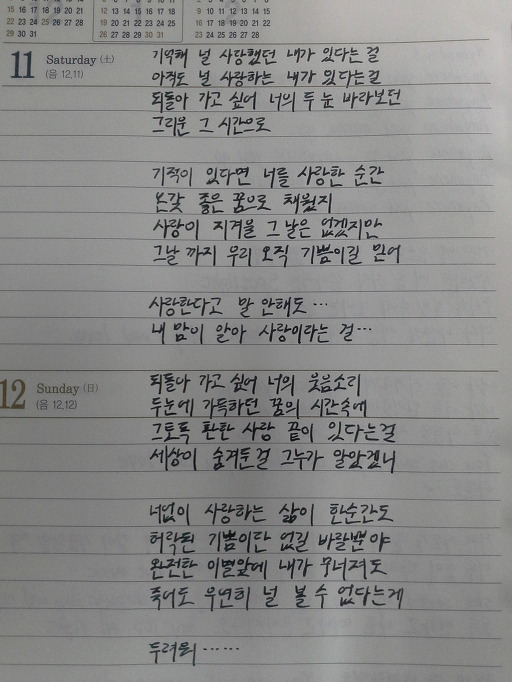 15 16 17 18 19 20 21
22 23 24 25 26 27 28
29 30 31
12 13 14 15 16 17 18
19 20 21 22 23 24 25
26 27 28 29 30 31
9 10 11 12 13 14 15
16 17 18 19 20 21 22
23 24 25 26 27 28 29
30
11 Saturday (土)
(음 12.11)
기억해 널 사랑했던 내가 있다는 걸
아직도 널 사랑하는 내가 있다는걸
되돌아 가고 싶어 너의 두 눈 바라보던
그리운 그 시간으로
기적이 있다면 너를 사랑한 순간
온갖 좋은 꿈으로 채웠지
사랑이 지겨울 그 날은 없겠지만
그날 까지 우리 오직 기쁨이길 믿어
사랑한다고 말 안해도 ···
내 맘이 알아 사랑이라는 걸 ···
12 Sunday (日)
(음 12.12)
되돌아 가고 싶어 너의 웃음소리
두눈에 가득하던 꿈의 시간속에
그토록 환한 사랑 끝이 있다는걸
세상이 숨겨둔걸 그누가 알았겠니
너없이 사랑하는 삶이 한순간도
허락된 기쁨이란 없길 바랄뿐야
완전한 이별앞에 내가 무너져도
죽어도 우연히 널 볼 수 없다는게
두려워 ······